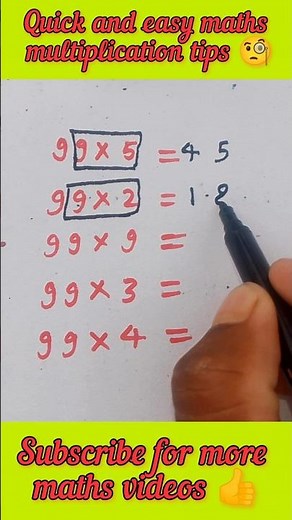 Quick and easy maths
multiplication tips 🧐
99 × 5 = 4 5
99 × 2 = 1 8
99 × 9 =
99 × 3 =
99 × 4 =
Subscribe for more
maths videos 👍